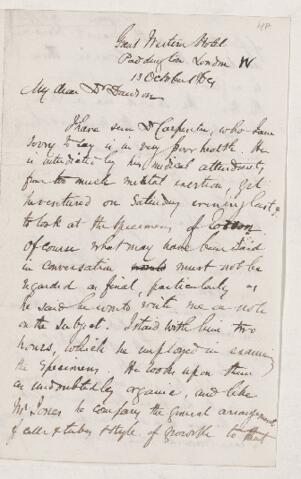 48
Great Western Hotel
Paddington London W
13 October 1864
My dear Dr Dawson
I have seen Dr Carpenter, who I am
sorry to say is in very poor health. He
is interdicted by his medical attendants,
from too much mental exertion, yet
he ventured on Saturday evening last,
to look at the specimens of Eozoon
Of course what may have been said
in conversation must not be
regarded as final, particularly as
he said he would write me a note
on the subject. I staid with him two
hours, which he employed in examining
the specimens. He looks upon them
as undoubtedly organic, and like
Mr Jones he compares the general arrangement
of cells & tubes & style of growth to that